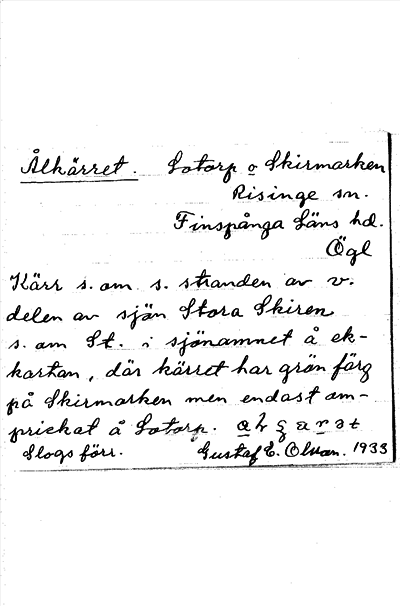 Ålkärret. Sotorp o Skirmarken
Risinge sn.
Finspånga Läns hd.
Ögl
Kärr s. om s. stranden av v.
delen av sjön Stora Skiren
s. om St. i sjönamnet å ek-
kartan, där kärret har grön färg
på Skirmarken men endast om-
prickat å Sotorp.
Slogs förr. Gustaf E. Olsson. 1933